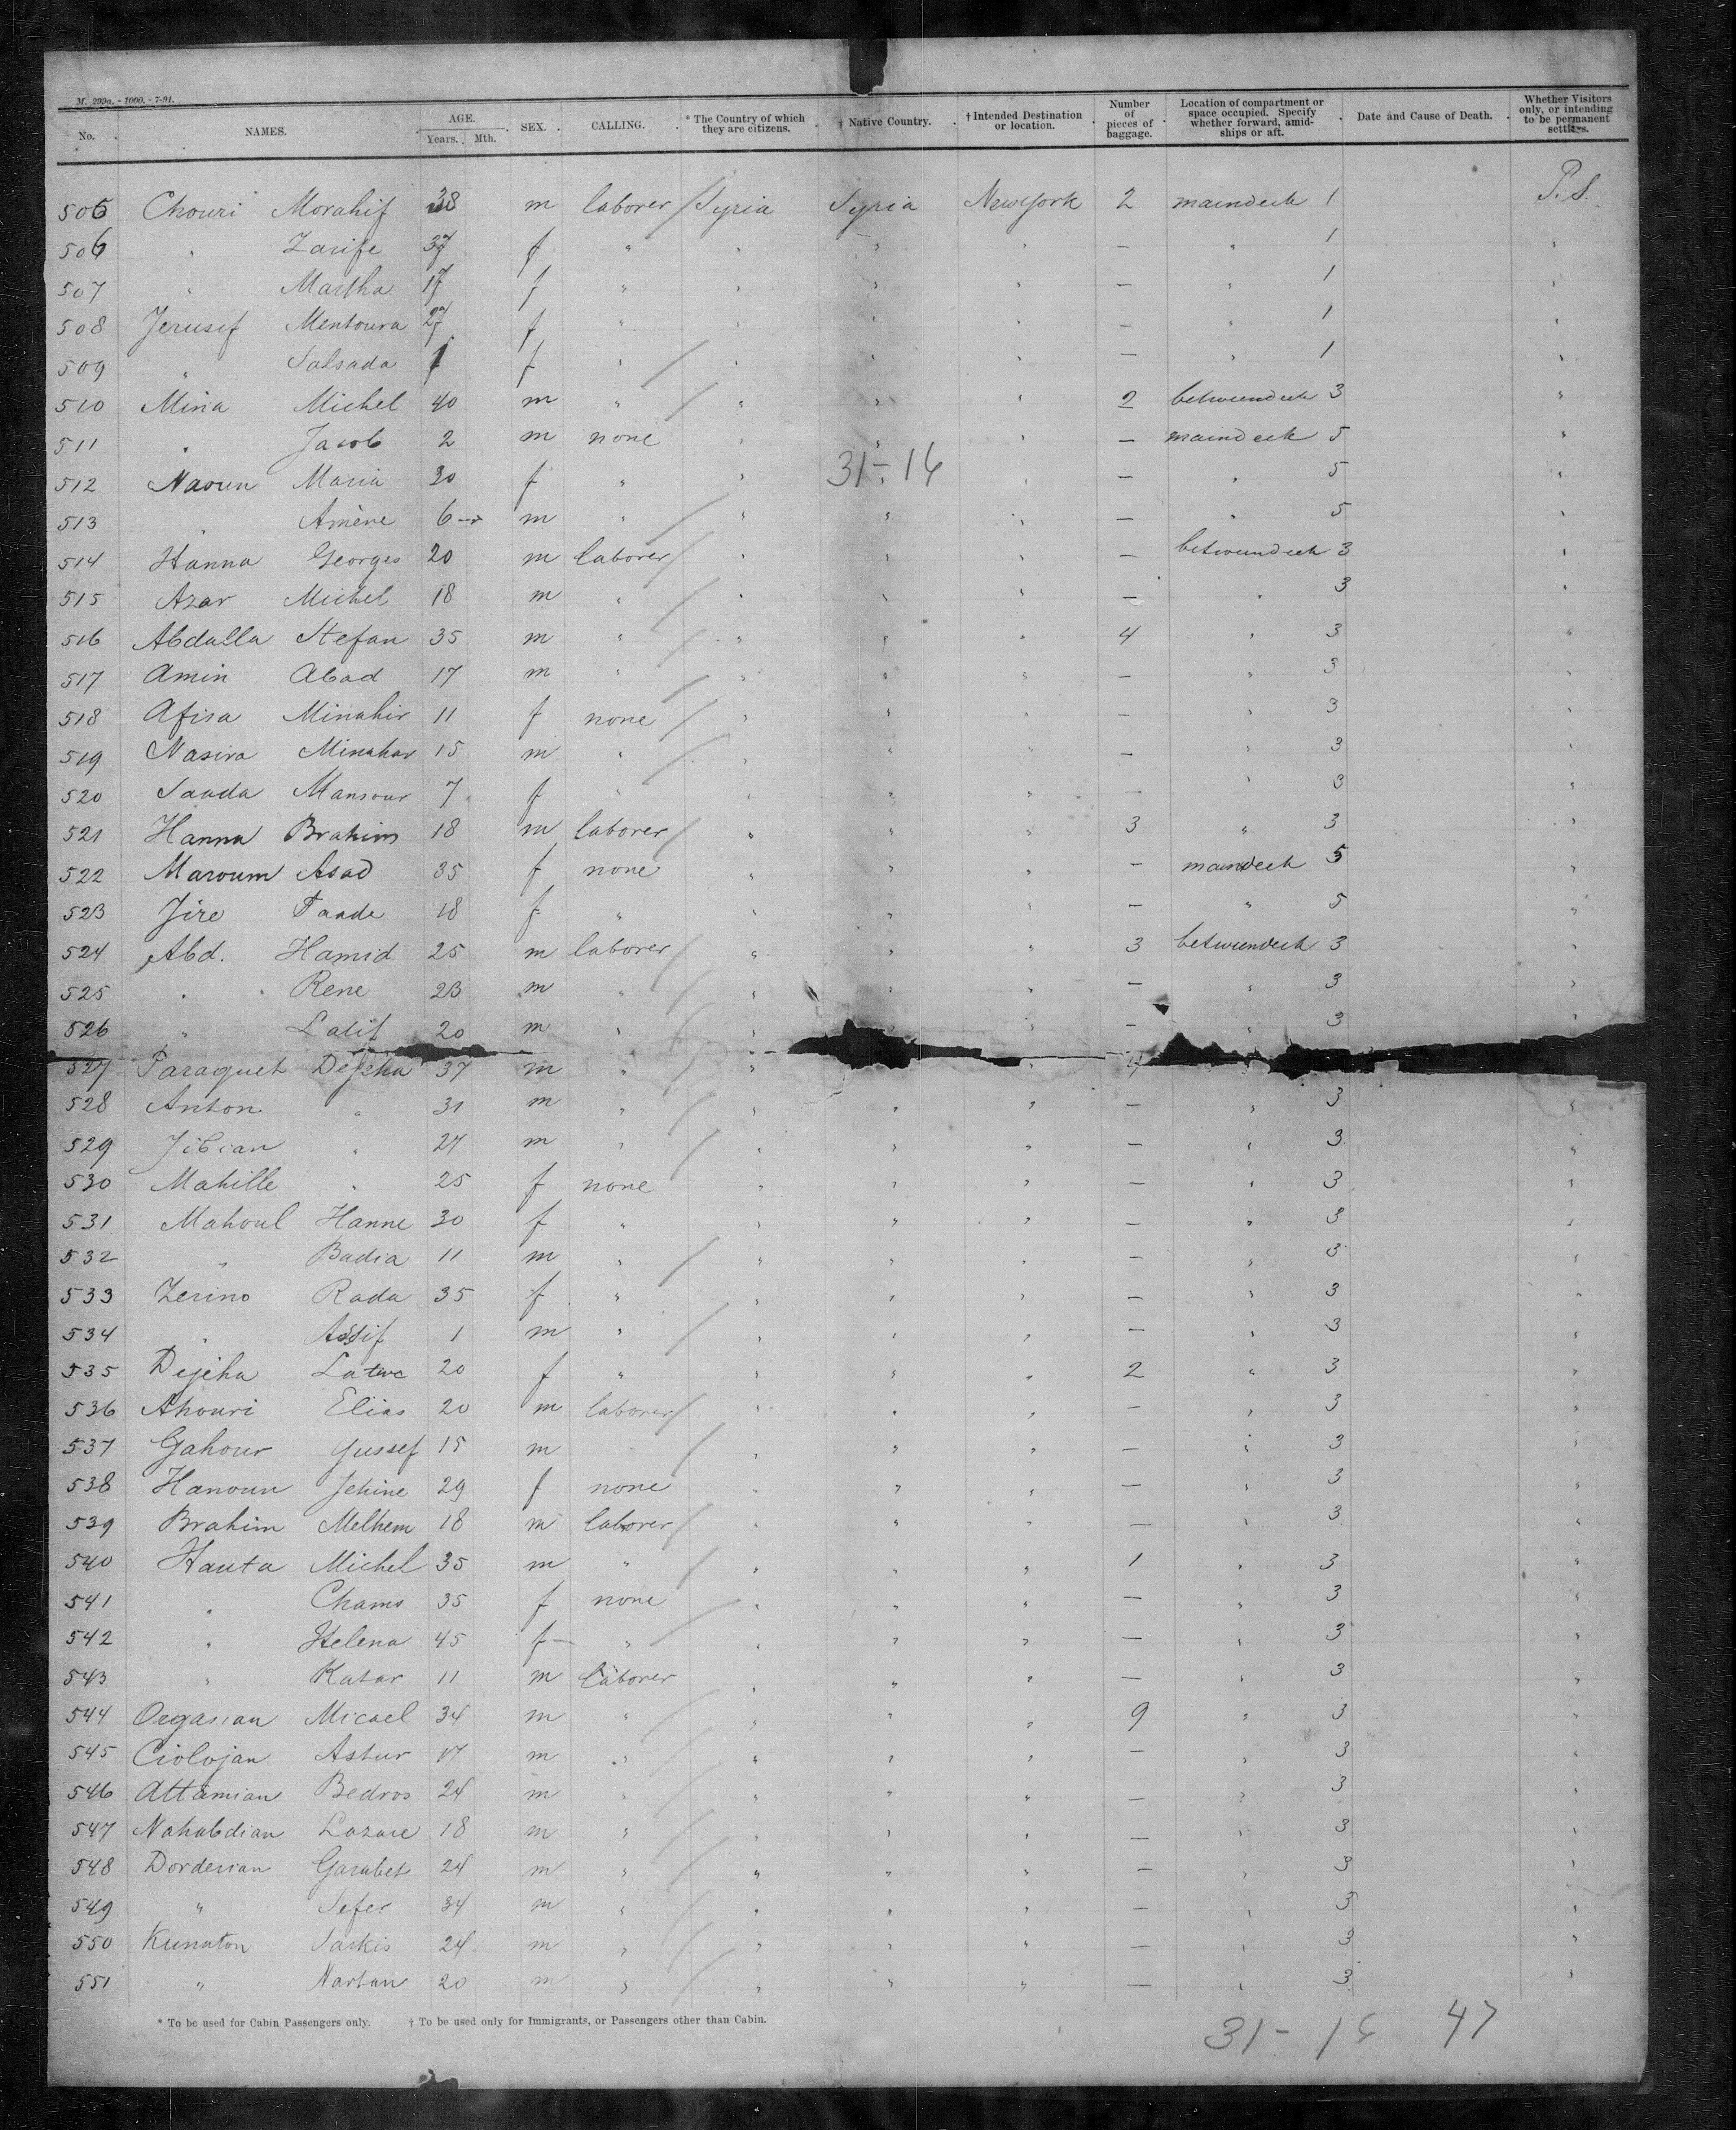 M. 299a. - 1000. - 7-91.
No. NAMES. AGE. Years. Mth. SEX. CALLING. * The Country of which they are citizens. † Native Country. † Intended Destination or location. Number of pieces of baggage. Location of compartment or space occupied. Specify whether forward, amidships or aft. Date and Cause of Death. Whether Visitors only, or intending to be permanent settlers.
505 Chouri Morahif 38 m laborer / Syria Syria New York 2 maindeck 1 P.S.
506 " Zarife 37 f " " " " — " 1 "
507 " Martha 17 f " " " " — " 1 "
508 Jerusef Mentoura 27 f " " " " — " 1 "
509 " Salsada f " / " " " — " 1 "
510 Mina Michel 40 m " / " " " 2 betweendeck 3 "
511 " Jacob 2 m none " " " — maindeck 5 "
31-16
512 Naoun Maria 30 f " " " — " 5 "
513 " Amène 6 m " / " " " — " 5 "
514 Hanna Georges 20 m laborer / " " " — betweendeck 3 "
515 Azar Michel 18 m " / " " " — " 3 "
516 Abdalla Stefan 35 m " / " " " 4 " 3 "
517 Amin Abad 17 m " / " " " — " 3 "
518 Afisa Minahir 11 f none / " " " — " 3 "
519 Nasira Minahar 15 m " / " " " — " 3 "
520 Saada Mansour 7 f " " " " — " 3 "
521 Hanna Brahim 18 m laborer / " " " 3 " 3 "
522 Maroum Asad 35 f none " " " — maindeck 5 "
523 Jire Taade 18 f " " " " — " 5 "
524 Abd. Hamid 25 m laborer / " " " 3 betweendeck 3 "
525 " Rene 23 m " / " " " — " 3 "
526 " Latif 20 m " / " " — " 3 "
527 Paraquet Dejeha 37 m " / " "
528 Anton " 31 m " / " " " — " 3 "
529 Jibian " 27 m " / " " " — " 3 "
530 Mahille " 25 f none " " " — " 3 "
531 Mahoul Hanne 30 f " " " " — " 3 "
532 " Badia 11 m " / " " " — " 3 "
533 Zerino Rada 35 f " " " " — " 3 "
534 " Assif 1 m " / " " " — " 3 "
535 Dejeha Latwe 20 f " " " " 2 " 3 "
536 Ahouri Elias 20 m laborer / " " " — " 3 "
537 Gahour Yussef 15 m " / " " " — " 3 "
538 Hanoun Jehine 29 f none " " " — " 3 "
539 Brahim Melhem 18 m laborer / " " " — " 3 "
540 Hauta Michel 35 m " / " " " 1 " 3 "
541 " Chams 35 f none " " " — " 3 "
542 " Helena 45 f — " / " " " — " 3 "
543 " Katar 11 m laborer " " " — " 3 "
544 Organian Micael 34 m " / " " " 9 " 3 "
545 Ciolojan Astur 17 m " / " " " — " 3 "
546 Attamian Bedros 24 m " / " " " — " 3 "
547 Nahabdian Lazare 18 m " / " " " — " 3 "
548 Dorderian Garabet 24 m " / " " " — " 3 "
549 " Sefer 34 m " / " " " — " 3 "
550 Kunaton Sarkis 24 m " / " " " — " 3 "
551 " Nartan 20 m " / " " " — " 3 "
* To be used for Cabin Passengers only. † To be used only for Immigrants, or Passengers other than Cabin.
31-16 47